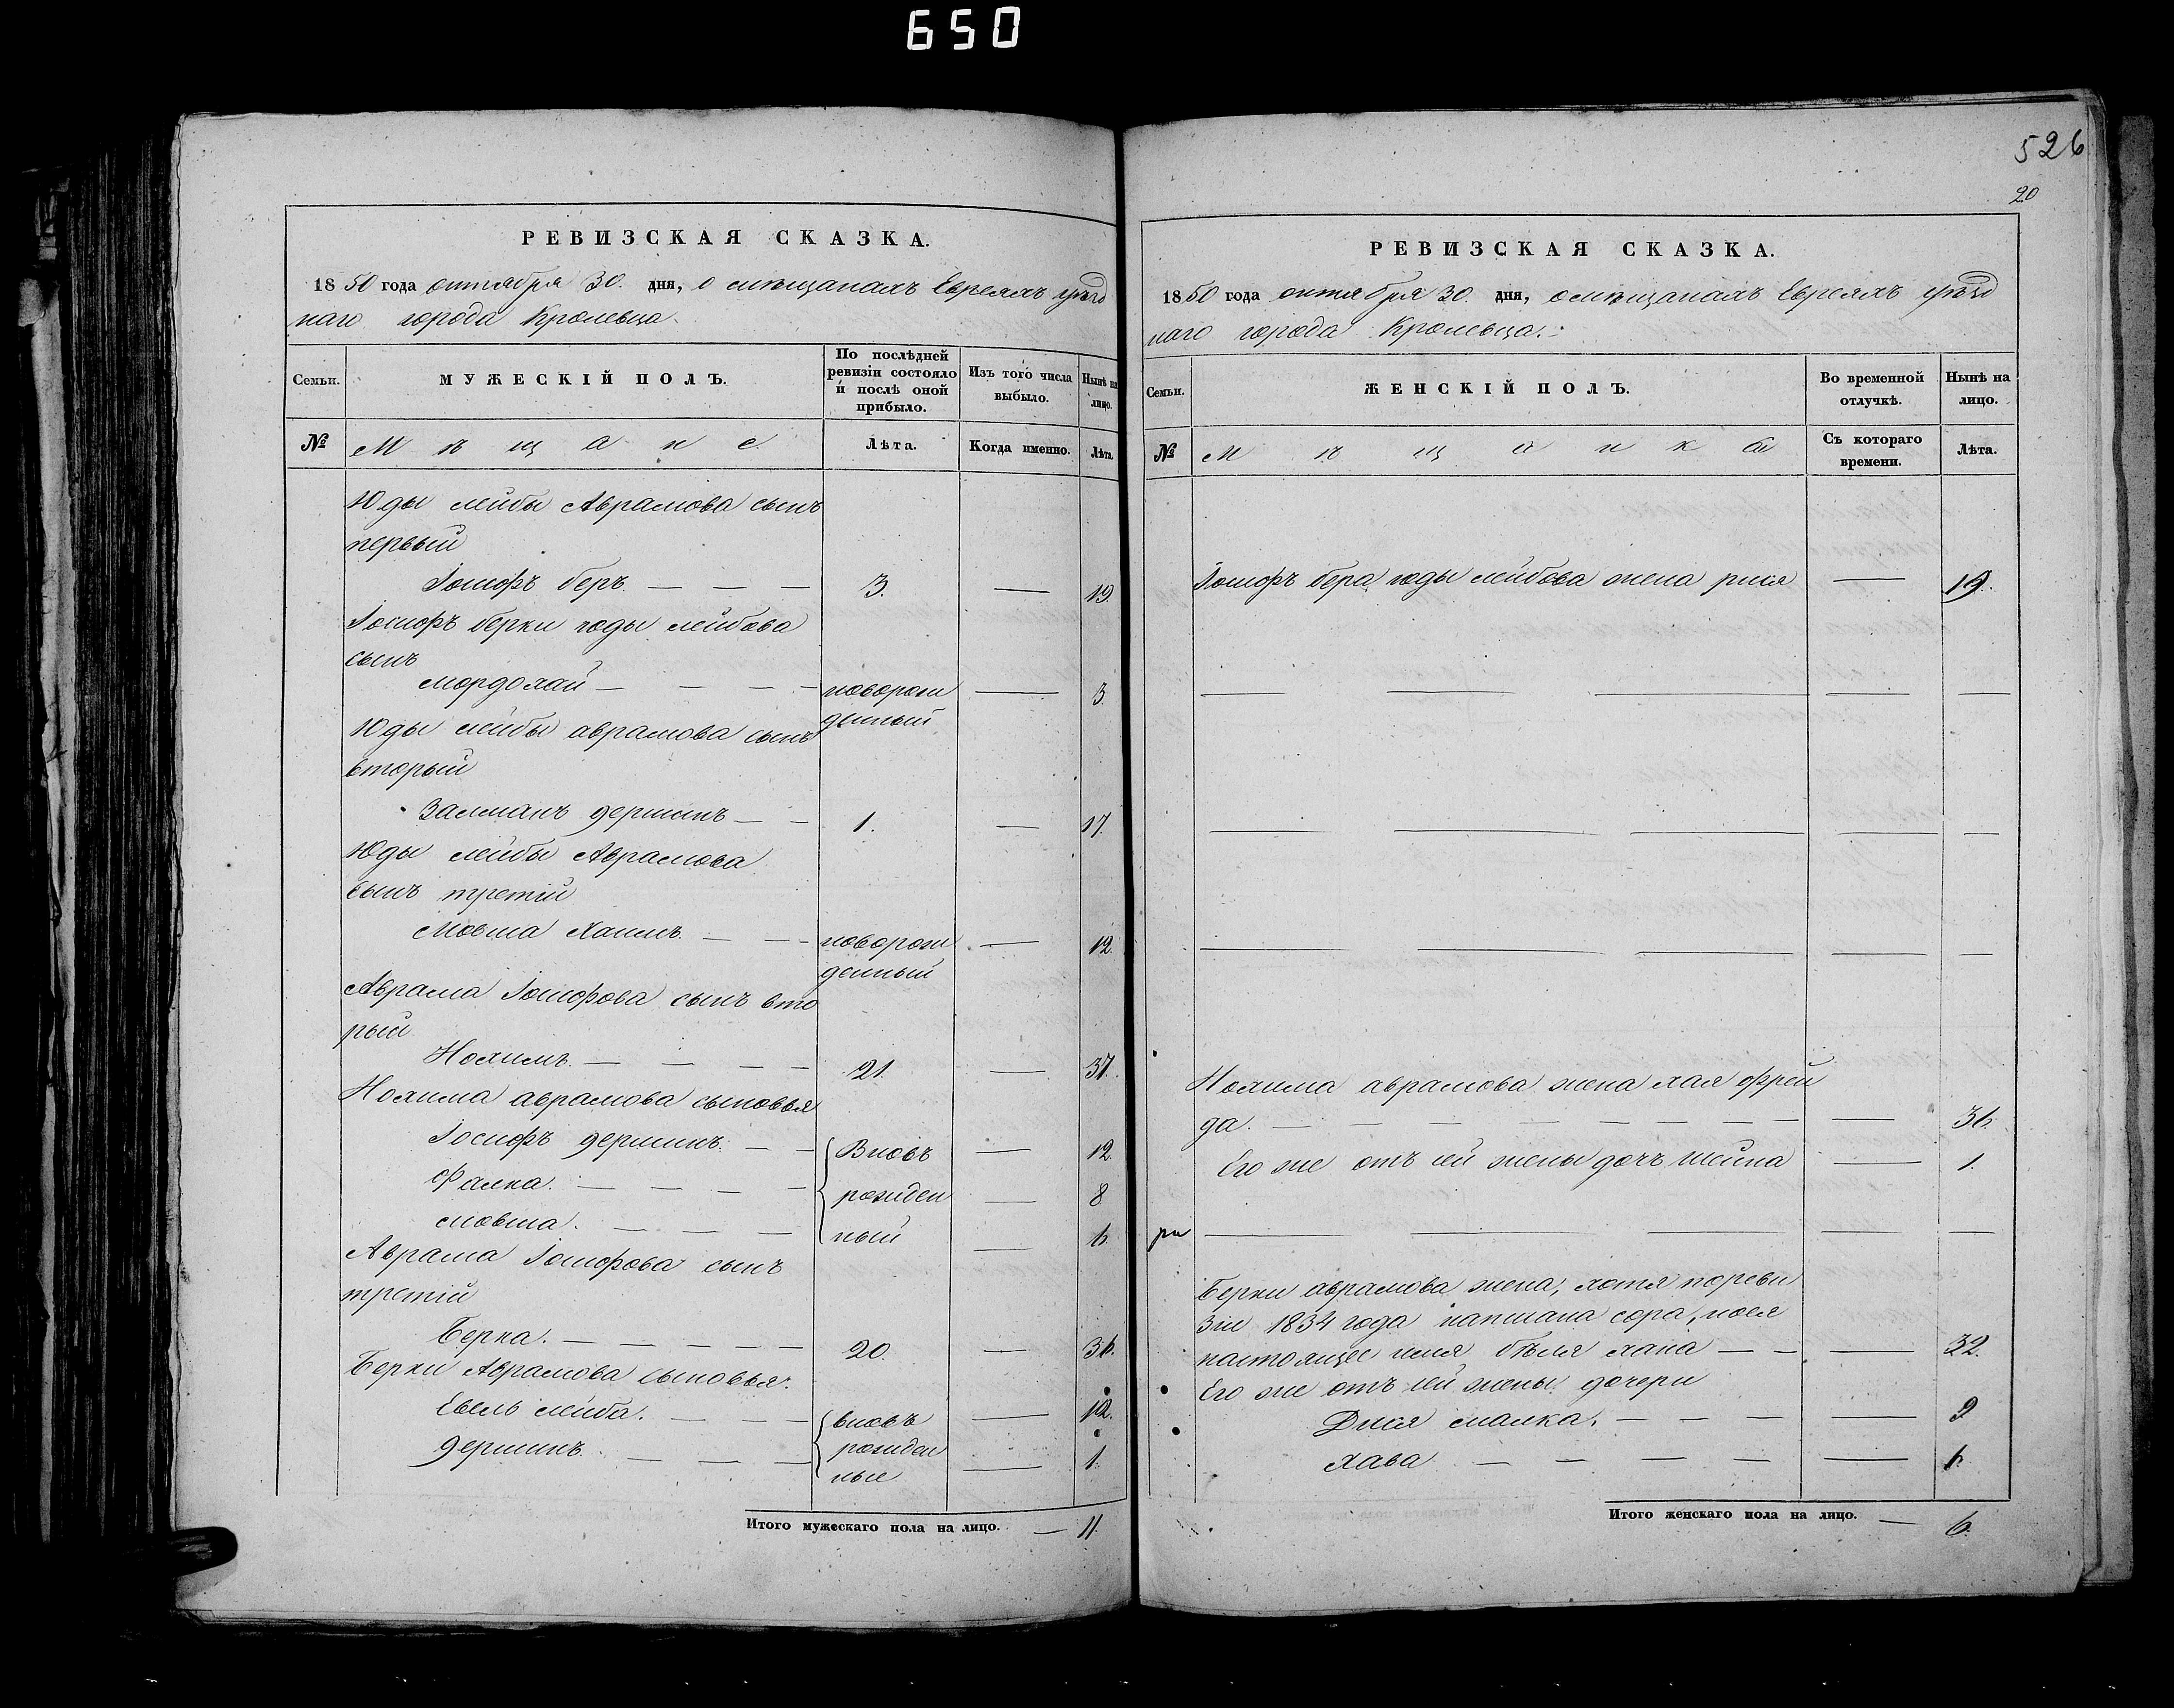 650
РЕВИЗСКАЯ СКАЗКА.
1850 года октября 30. дня, о мѣщанахъ Евреяхъ уѣзд
наго города Кролевца.
Семьи.
МУЖЕСКІЙ ПОЛЪ.
По послѣдней
ревизіи состояло
и послѣ оной
прибыло.
Изъ того числа
выбыло.
Нынѣ на
лицо.
№
Мѣщане.
Лѣта.
Когда именно.
Лѣта.
Юды лейбы Аврамова сынъ
первый
Іосифъ беръ — — — 3. — 19.
Іосифъ берки юды лейбова
сынъ
мордохай — — — — новорож — 3.
денный
Юды лейбы аврамова сынъ
вторый
Залманъ гершинъ — — 1. — 17.
Юды лейбы Аврамова
сынъ третій
Мовша Хаимъ — — новорож — 12.
денный
Аврама Іосифова сынъ вто
рый
Нохимъ — — — — 21. — 37.
Нохима аврамова сыновья
Іосифъ гершинъ — — Вновь — 12.
Фалка. — — — — рожден — 8
мовша. — — — ный — 6
Аврама Іосифова сынъ
третій
Берка. — — — — 20. — 36.
Берки Аврамова сыновья.
Евель лейба. — — — вновь — 12.
гершинъ. — — — рожден — 1.
ные
Итого мужескаго пола на лицо. — 11.
526
20
РЕВИЗСКАЯ СКАЗКА.
1850 года октября 30. дня, о мѣщанахъ Евреяхъ уѣзд
наго города Кролевца.
Семьи.
ЖЕНСКІЙ ПОЛЪ.
Во временной
отлучкѣ.
Нынѣ на
лицо.
№
Мѣщанки
Съ котораго
времени.
Лѣта.
Іосифъ бера юды лейбова жена рися — 19.
Нохима аврамова жена хая фрей
да. — — — — — — — — — 36
Его же отъ ней жены дочь шейна — 1.
Берки аврамова жена, хотя по реви
зіи 1834 года написана сора, но ея
настоящее имя бѣля хана — — — 32.
Его же отъ ней жены дочери
Дися малка. — — — — 9
хава — — — — — 6
Итого женскаго пола на лицо. — 6.